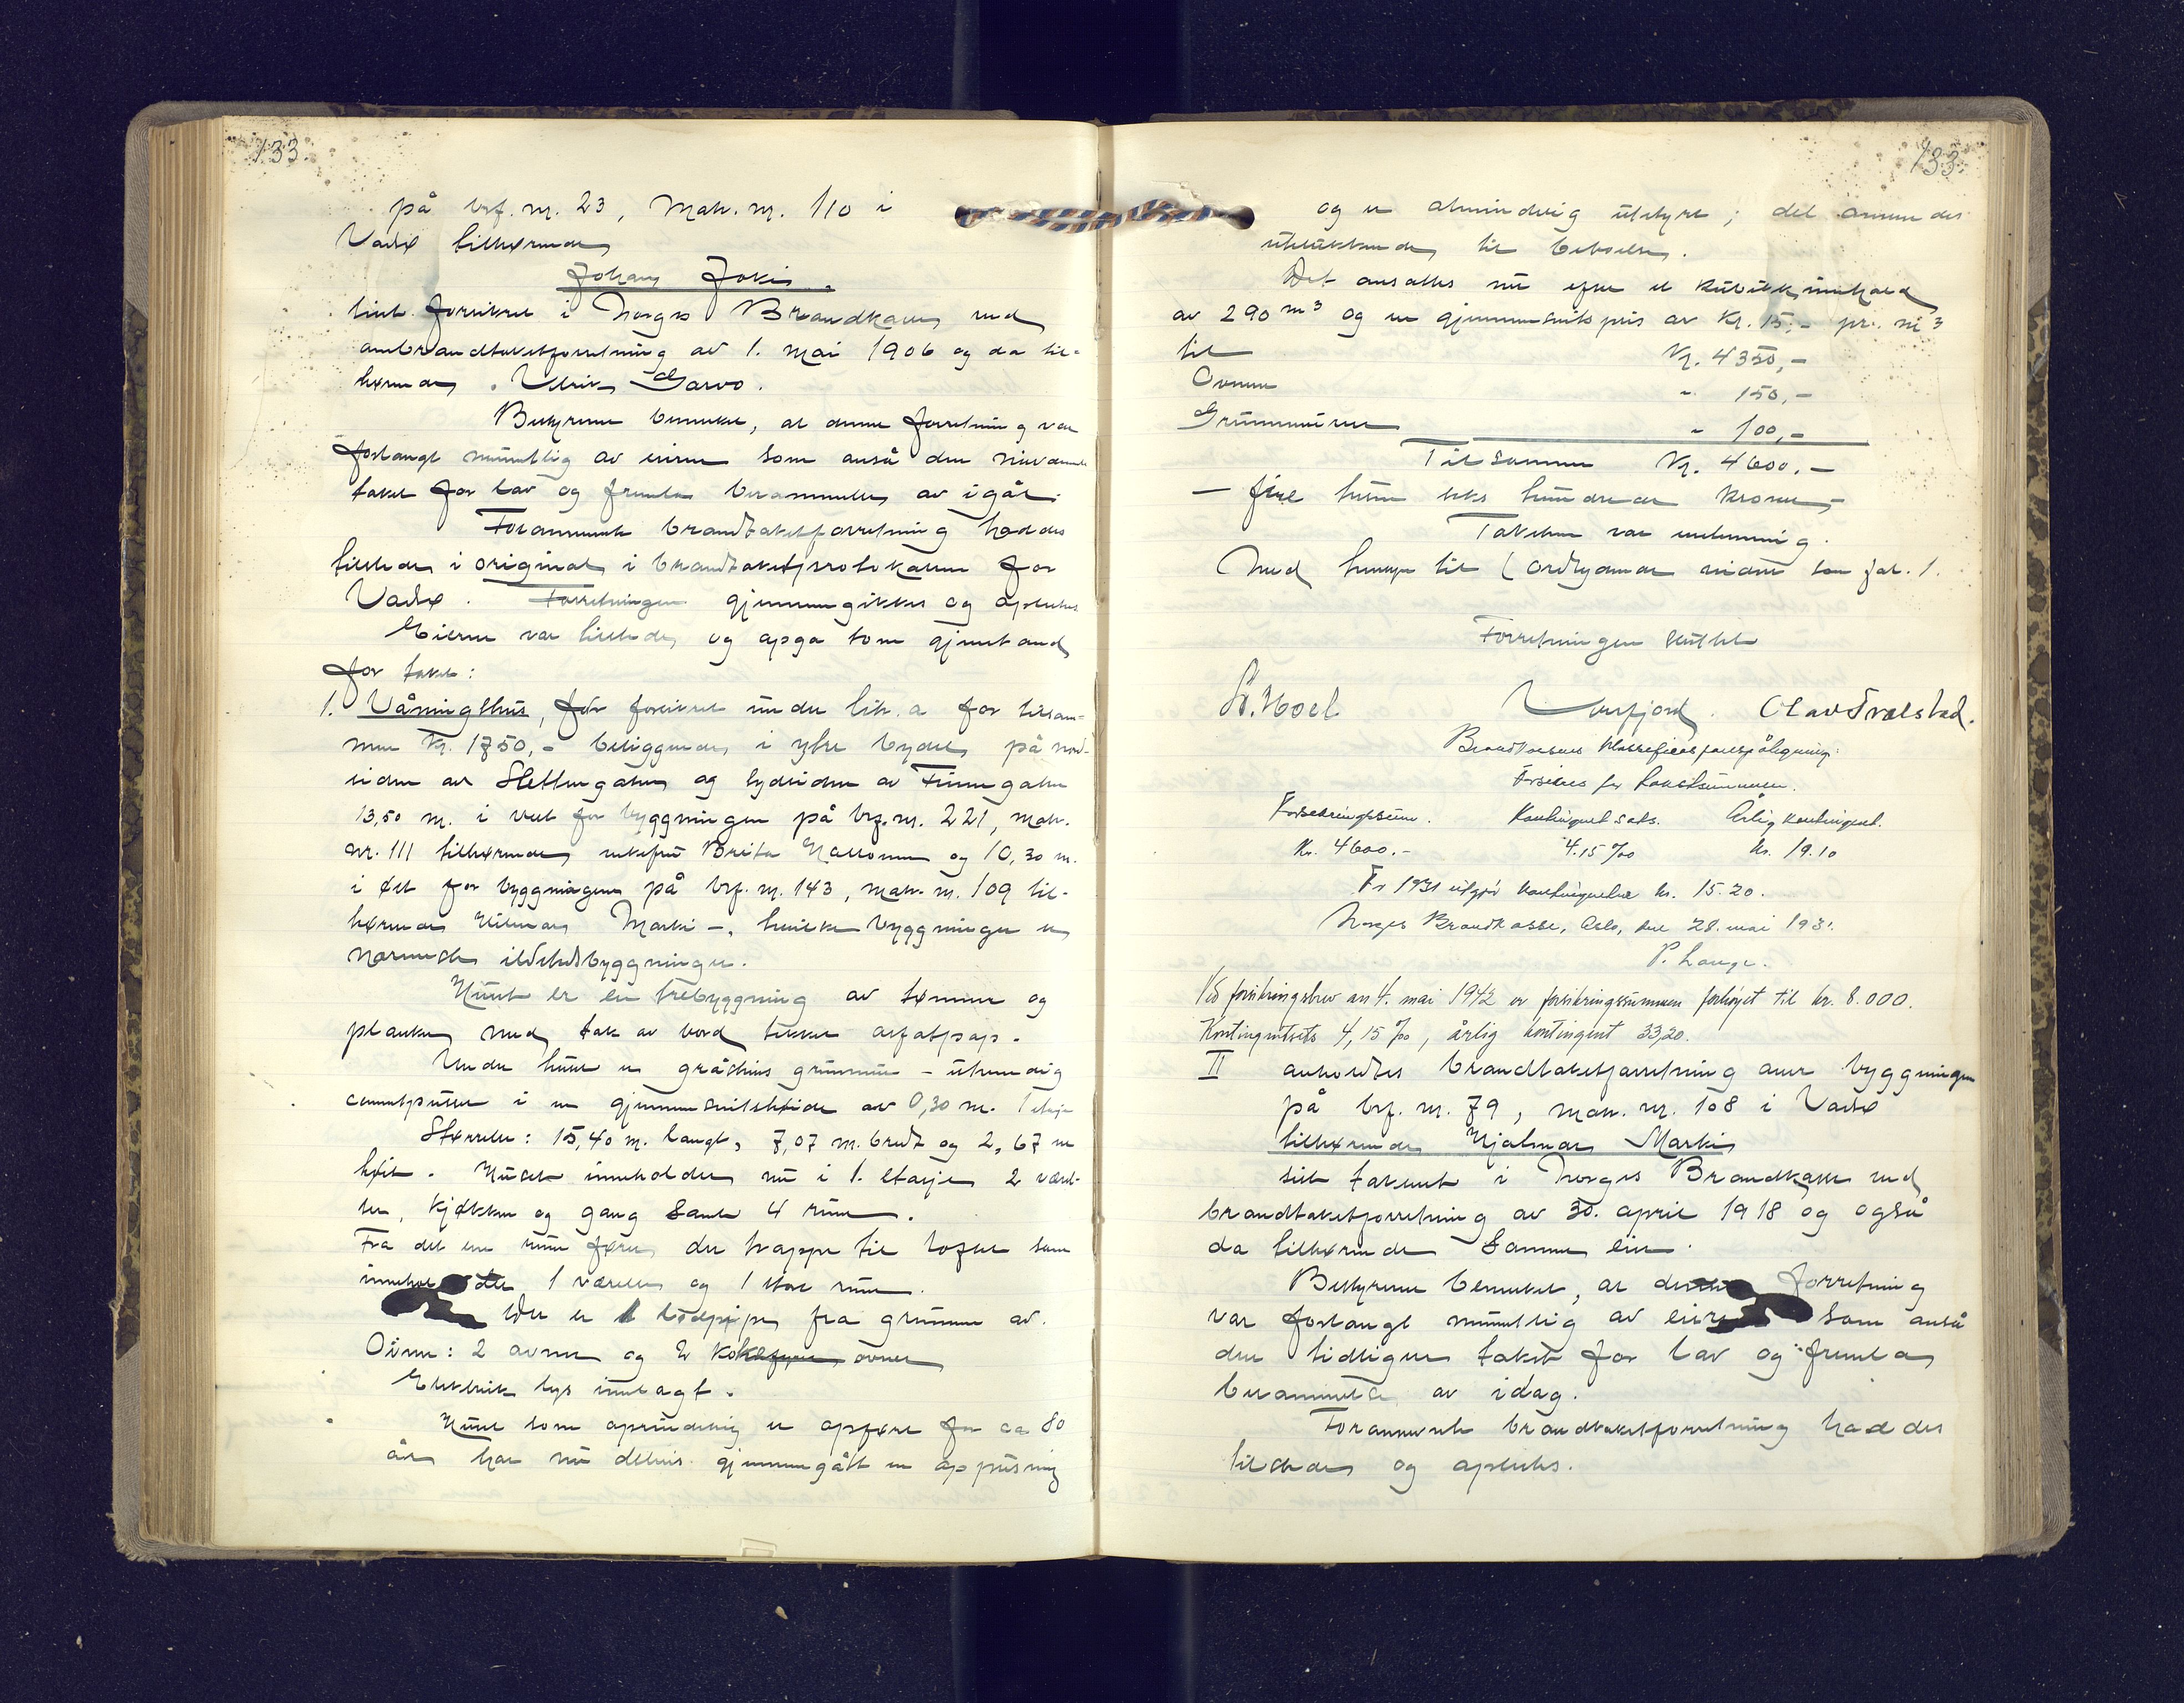 133.
på brf. nr. 23, Matr. nr. 110 i
Vadsø tilhørende
Johan Jokis
sist forsikret i Norges Brandkasse ved
ombrandtakstforretning av 1. mai 1906 og da til-
hørende Ulrik Sarvo.
Bestyreren bemerket, at denne forretning var
forlangt muntlig av eieren som anså den nuværende
takst for lav og fremla berammelse av igår.
Forannevnte brandtakstforretning haddes
tilstede i original i brandtakstprotokollen for
Vadsø. Forretningen gjennemgikkes og oplestes
Eieren var tilstede og opga som gjenstand
for takst:
1. Våningshus, før forsikret under litr. a for tilsam-
men kr. 1750,- beliggende i ytre bydel på nord-
siden av Slettengaten og sydsiden av Finnegaten
13,50 m. i vest for bygningen på brf. nr. 221, matr.
nr. 111 tilhørende enkefru Brita og 10,30 m.
i øst for bygningen på brf. nr. 143, matr. nr. 109 til-
hørende Hilmar Marki -, hvilke bygninger er
nærmeste ildstedsbygninger.
Huset er en trebygning av tømmer og
planker med tak av bord tekket asfaltpap.
Under huset er gråstens grunnmur - utvendig
cementpusset i en gjennemsnitshøide av 0,30 m. 1 etasje
Størrelse: 15,40 m. langt, 7,07 m. bredt og 2,67 m
høit. Huset inneholder nu i 1. etasje 2 værel-
ser, kjøkken og gang samt 4 rum.
Fra det ene rum fører der trappe til loftet som
inneholder 1 værelse og 1 stort rum.
Der er 1 lodpipe fra grunnen av.
Ovner: 2 ovner og 2 kokeovner
Elektrisk lys innlagt.
Huset som oprindelig er opført for ca 80
år har nu delvis gjennemgått en oppusning
133.
og er almindelig utstyrt; det anvendes
utelukkende til beboelse.
Det ansattes nu efter et kubikkinnhold
av 290 m³ og en gjennemsnitspris av kr. 15.- pr. m³
til Kr. 4350,-
Ovnene " 150,-
Grunnmuren " 100,-
Tilsammen Kr. 4600.-
- fire tusen seks hundrede kroner -
Taksten var enstemmig.
Med hensyn til
Forretningen sluttet
St. Moel Olav Trælstad.
Brandkassens klassifikasjonspåtegning:
Forsikres for takstsummen.
Forsikringssum. Kontingentsats. Årlig kontingent.
Kr. 4600.- 4.15 ‰ kr. 19.10
For 1931 utgjør kontingenten kr. 15.20.
Norges Brandkasse, Oslo, den 28. mai 1931.
P. Lange.
Ved forsikringsbrev av 4. mai 1942 er forsikringssummen forhøyet til kr. 8.000.
Kontingentsats 4,15 ‰, årlig kontingent 33,20.
II avholdtes brandtakstforretning over bygningen
på brf. nr. 79, matr. nr. 108 i Vadsø
tilhørende Hjalmar Marki
sist taksert i Norges Brandkasse ved
brandtakstforretning av 30. april 1918 og også
da tilhørende samme eier.
Bestyreren bemerket, at denne forretning
var forlangt muntlig av eieren som anså
den tidligere takst for lav og fremla
berammelse av idag.
Forannevnte brandtakstforretning haddes
tilstede og oplestes.